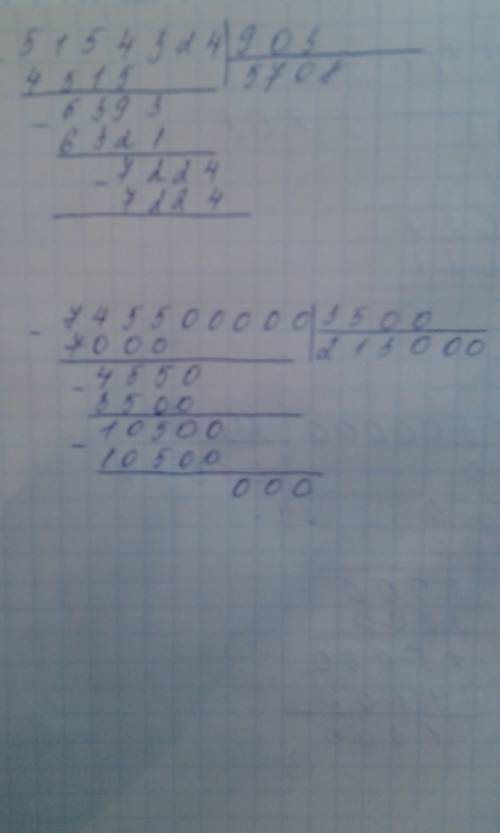 5154324 903
4515 5708
- 6393
6321
- 7224
7224
- 745500000 3500
7000 213000
- 4550
3500
- 10500
10500
000